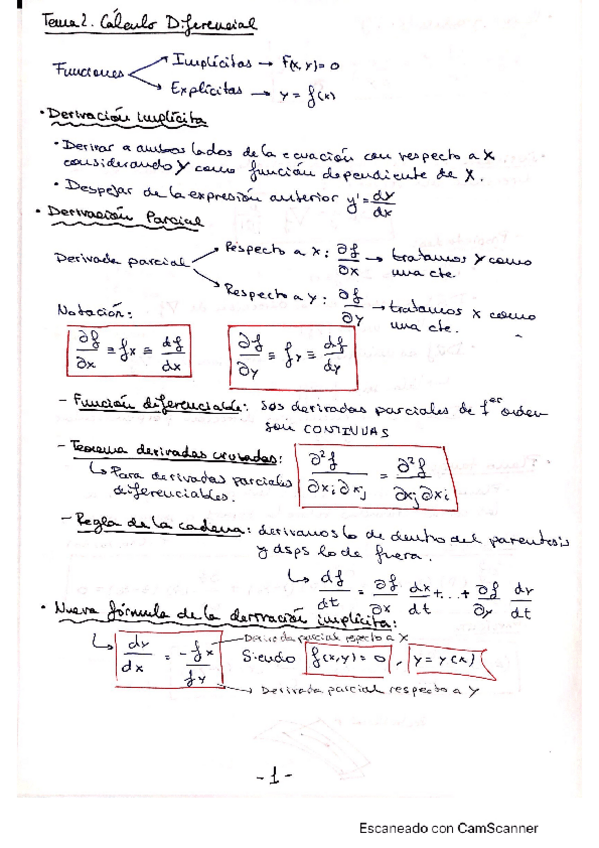 Tema 2. Cálculo Diferencial
Funciones
Implícitas → F(x,y)=0
Explícitas → y = f(x)
• Derivación implícita
• Derivar a ambos lados de la ecuación con respecto a x
considerando y como función dependiente de x.
• Despejar de la expresión anterior y' = dy/dx
• Derivación Parcial
Derivada parcial
Respecto a x: ∂f/∂x → tratamos y como
una cte.
Respecto a y: ∂f/∂y → tratamos x como
una cte.
Notación:
∂f/∂x ≡ fx ≡ df/dx
∂f/∂y ≡ fy ≡ df/dy
- Función diferenciable: sus derivadas parciales de 1er orden
son CONTINUAS
- Teorema derivadas cruzadas:
↳ Para derivadas parciales
diferenciables.
∂²f/∂xi∂xj = ∂²f/∂xj∂xi
- Regla de la cadena: derivamos lo de dentro del parentesis
y dsps lo de fuera.
↳ df/dt = ∂f/∂x dx/dt + ... + ∂f/∂y dy/dt
• Nueva fórmula de la derivación implícita:
↳ dy/dx = -fx/fy
Derivada parcial respecto a x
Siendo f(x,y) = 0, y = y(x)
Derivada parcial respecto a y
- 1 -
Escaneado con CamScanner